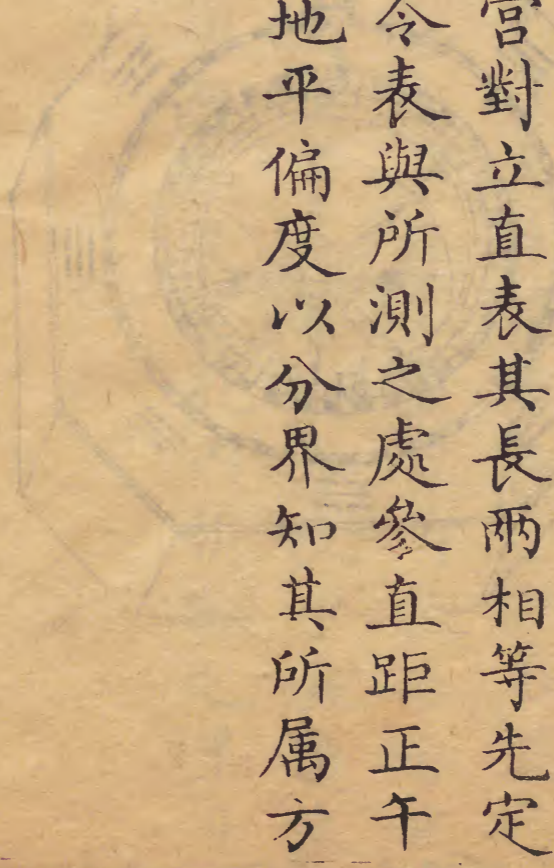 對立直表其長兩相等先定
令表與所測之處參直距正午
地平偏度以分界知其所属方